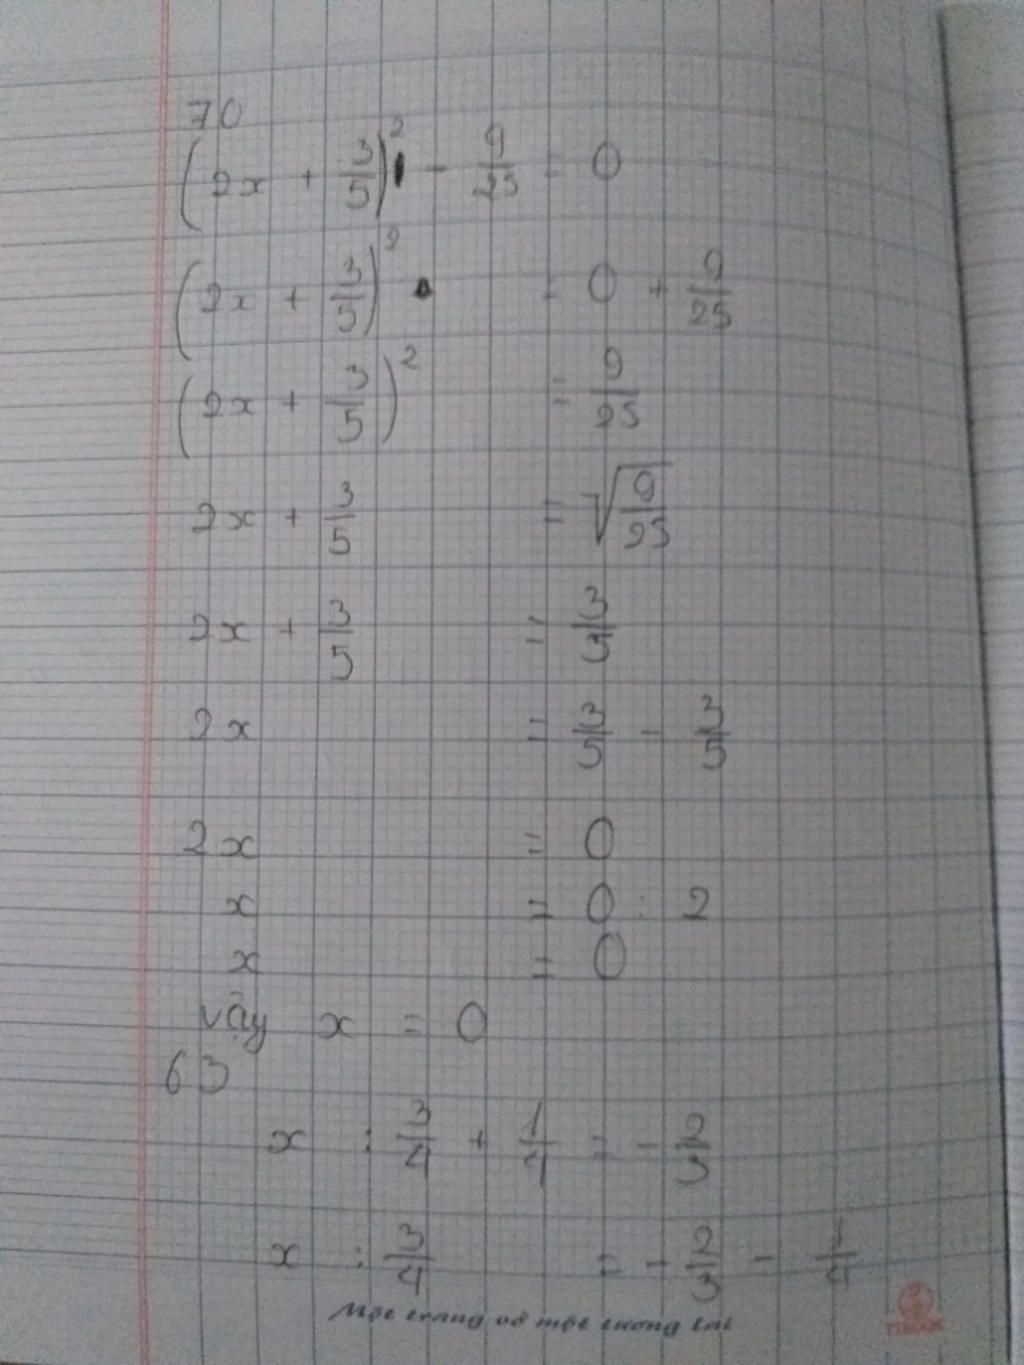 70
(2x + 3/5)² - 9/25 = 0
(2x + 3/5)² = 0 + 9/25
(2x + 3/5)² = 9/25
2x + 3/5 = √(9/25)
2x + 3/5 = 3/5
2x = 3/5 - 3/5
2x = 0
x = 0 : 2
x = 0
vậy x = 0
63
x : 3/4 + 1/4 = - 2/3
x : 3/4 = - 2/3 - 1/4
Một trang vở một tương lai